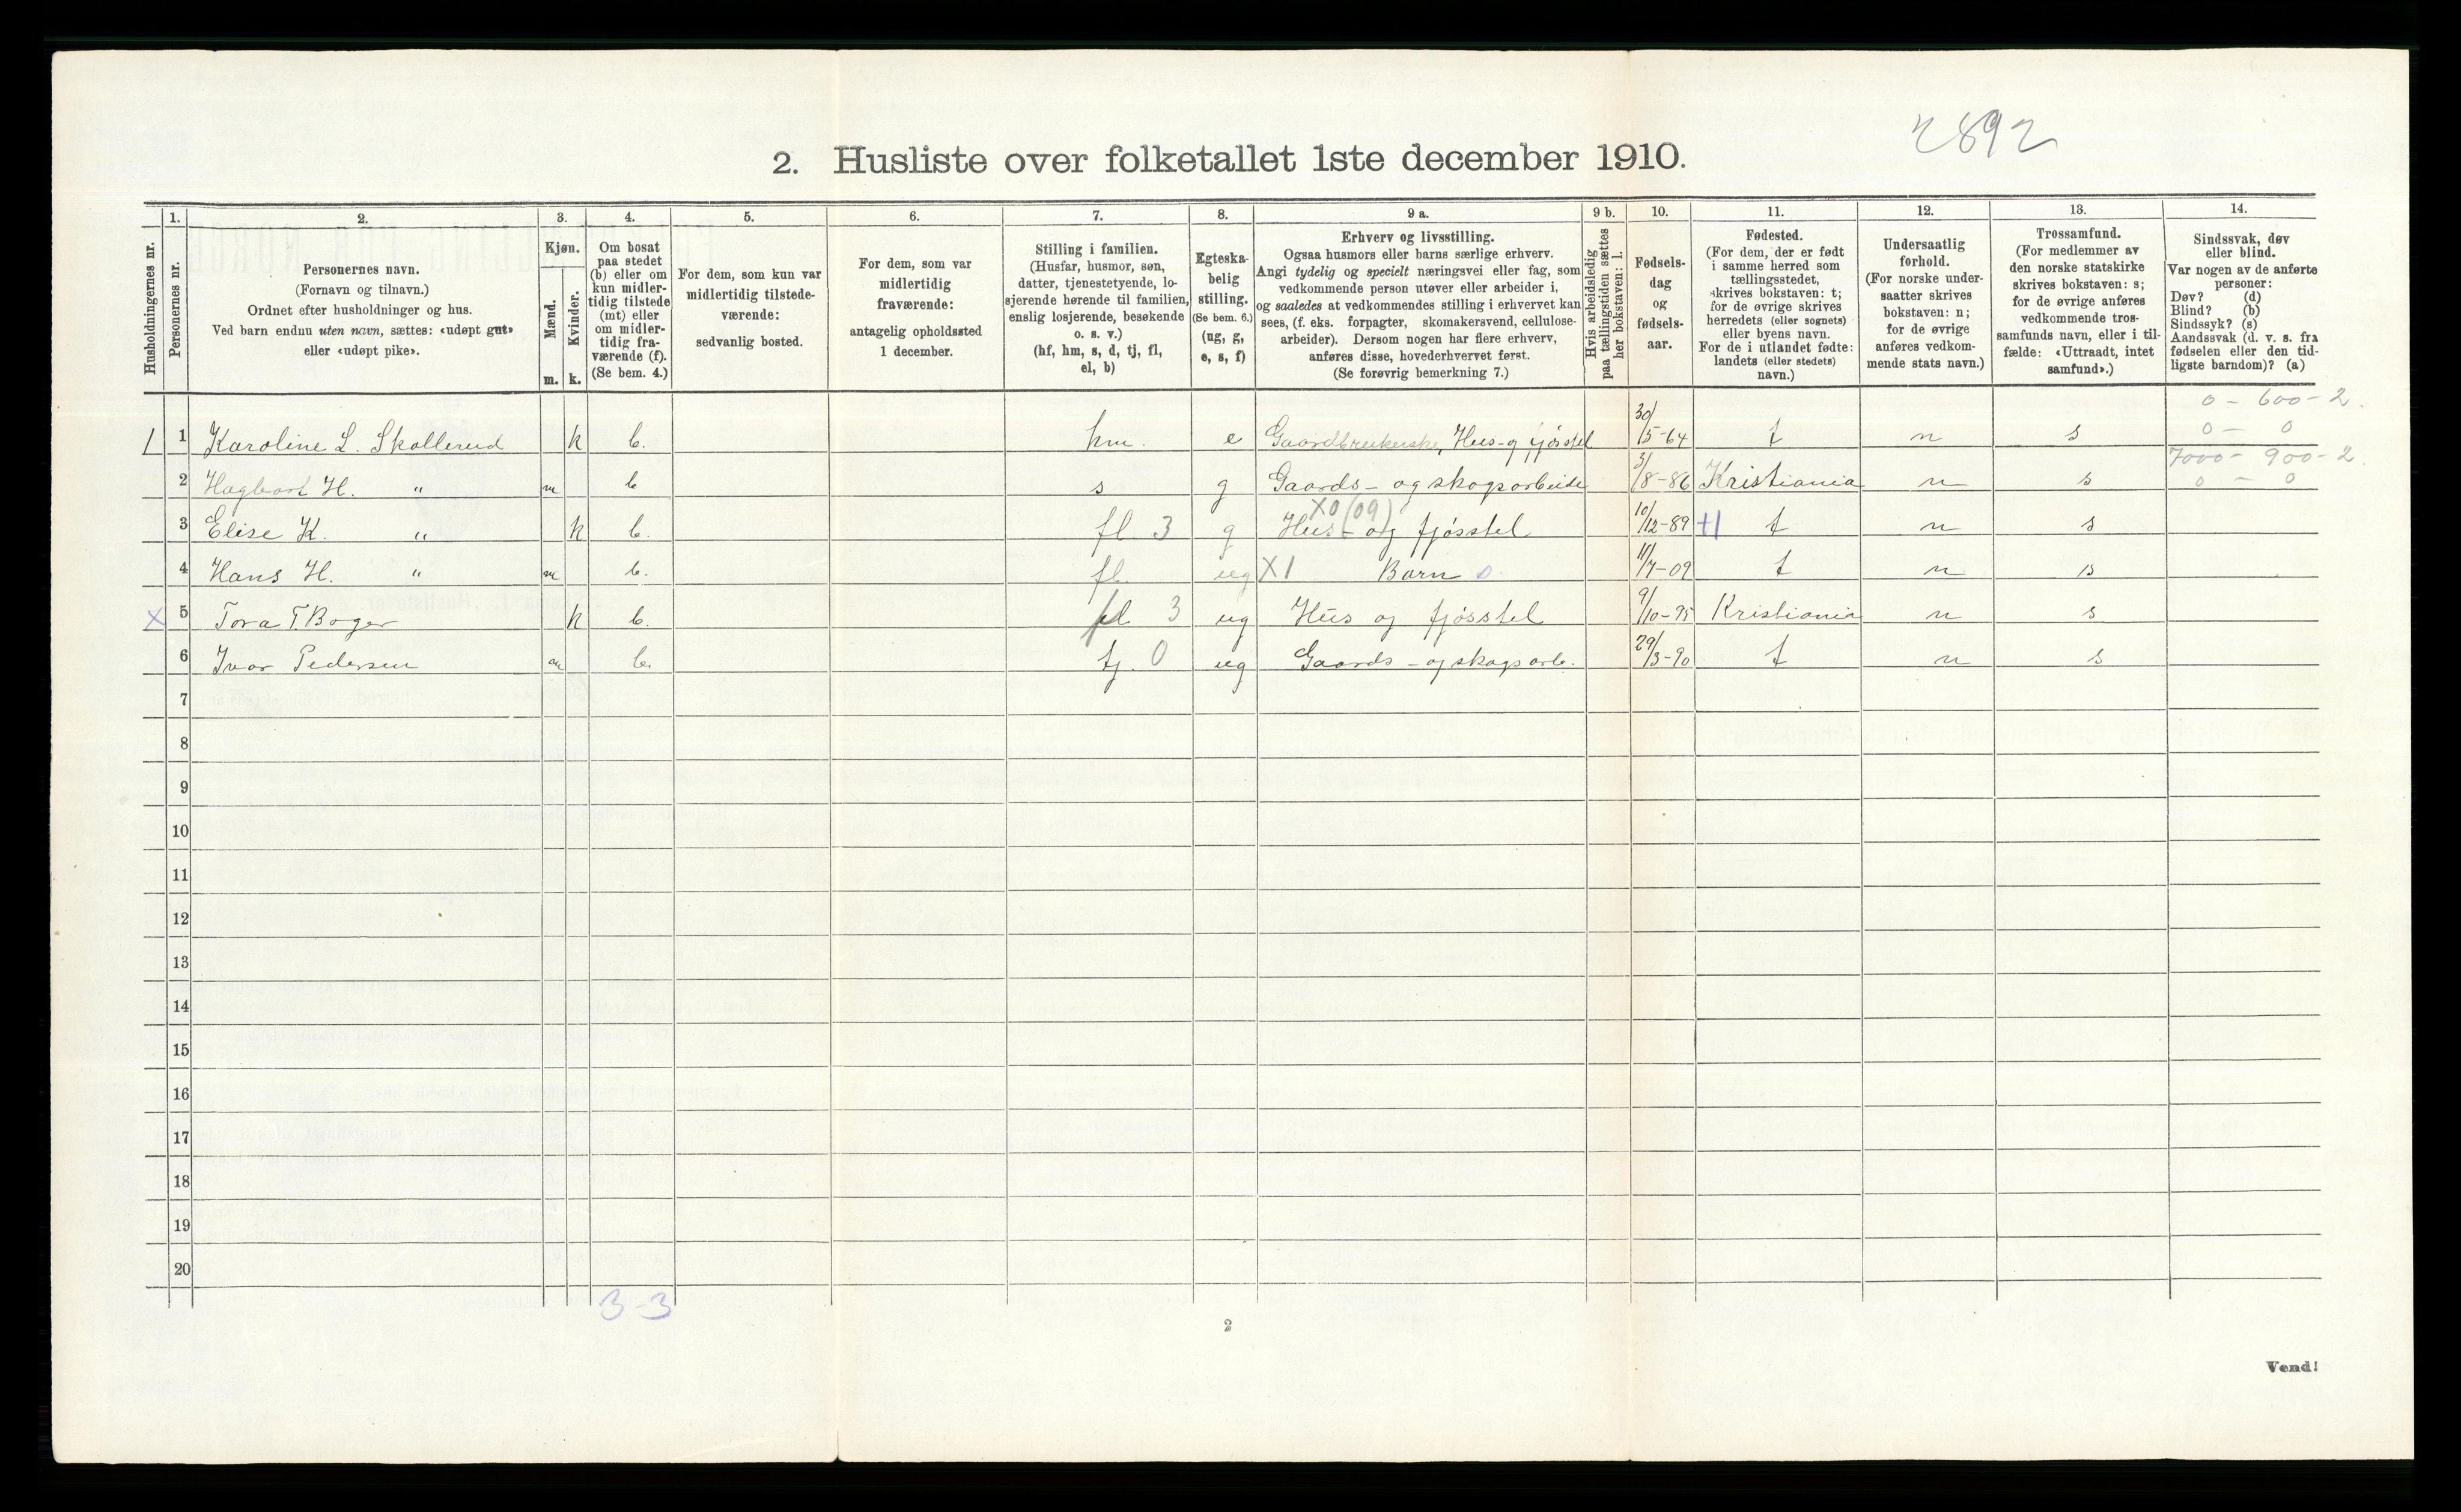 2892
2. Husliste over folketallet 1ste december 1910.
1. 2. 3. 4. 5. 6. 7. 8. 9 a. 9 b. 10. 11. 12. 13. 14.
Husholdningernes nr.
Personernes nr.
Personernes navn.
(Fornavn og tilnavn.)
Ordnet efter husholdninger og hus.
Ved barn endnu uten navn, sættes: «udøpt gut»
eller «udøpt pike».
Kjøn.
Mænd.
Kvinder.
m. k.
Om bosat
paa stedet
(b) eller om
kun midler-
tidig tilstede
(mt) eller
om midler-
tidig fra-
værende (f).
(Se bem. 4.)
For dem, som kun var
midlertidig tilstede-
værende:
sedvanlig bosted.
For dem, som var
midlertidig
fraværende:
antagelig opholdssted
1 december.
Stilling i familien.
(Husfar, husmor, søn,
datter, tjenestetyende, lo-
sjerende hørende til familien,
enslig losjerende, besøkende
o. s. v.)
(hf, hm, s, d, tj, fl,
el, b)
Egteska-
belig
stilling.
(Se bem. 6.)
(ug, g,
e, s, f)
Erhverv og livsstilling.
Ogsaa husmors eller barns særlige erhverv.
Angi tydelig og specielt næringsvei eller fag, som
vedkommende person utøver eller arbeider i,
og saaledes at vedkommendes stilling i erhvervet kan
sees, (f. eks. forpagter, skomakersvend, cellulose-
arbeider). Dersom nogen har flere erhverv,
anføres disse, hovederhvervet først.
(Se forøvrig bemerkning 7.)
Hvis arbeidsledig
paa tællingstiden sættes
her bokstaven: l.
Fødsels-
dag
og
fødsels-
aar.
Fødested.
(For dem, der er født
i samme herred som
tællingsstedet,
skrives bokstaven: t;
for de øvrige skrives
herredets (eller sognets)
eller byens navn.
For de i utlandet fødte:
landets (eller stedets)
navn.)
Undersaatlig
forhold.
(For norske under-
saatter skrives
bokstaven: n;
for de øvrige
anføres vedkom-
mende stats navn.)
Trossamfund.
(For medlemmer av
den norske statskirke
skrives bokstaven: s;
for de øvrige anføres
vedkommende tros-
samfunds navn, eller i til-
fælde: «Uttraadt, intet
samfund».)
Sindssvak, døv
eller blind.
Var nogen av de anførte
personer:
Døv? (d)
Blind? (b)
Sindssyk? (s)
Aandssvak (d. v. s. fra
fødselen eller den tid-
ligste barndom)? (a)
0 - 600 - 2.
1 1 Karoline L. Skollerud k b. hm. e Gaardbrukerske, Hus- og fjøsstel 30/5-64 t n s 0 - 0
7000 - 900 - 2.
2 Hagbart H. " m b s g Gaards- og skogsarbeide 3/8-86 Kristiania n s 0 - 0
X0 (09)
3 Elise K. " k b. fl. 3 g Hus- og fjøsstel 10/12-89 +1 t n s
4 Hans H. " m b. fl. ug X1 Barn 0. 11/7-09 t n s
X 5 Tora T. Boger k b. fl 3 ug Hus og fjøsstel 9/10-95 Kristiania n s
6 Ivar Pedersen m b. tj. 0 ug Gaards- og skogsarb. 29/3-90 t n s
7
8
9
10
11
12
13
14
15
16
17
18
19
20
3-3
2
Vend!